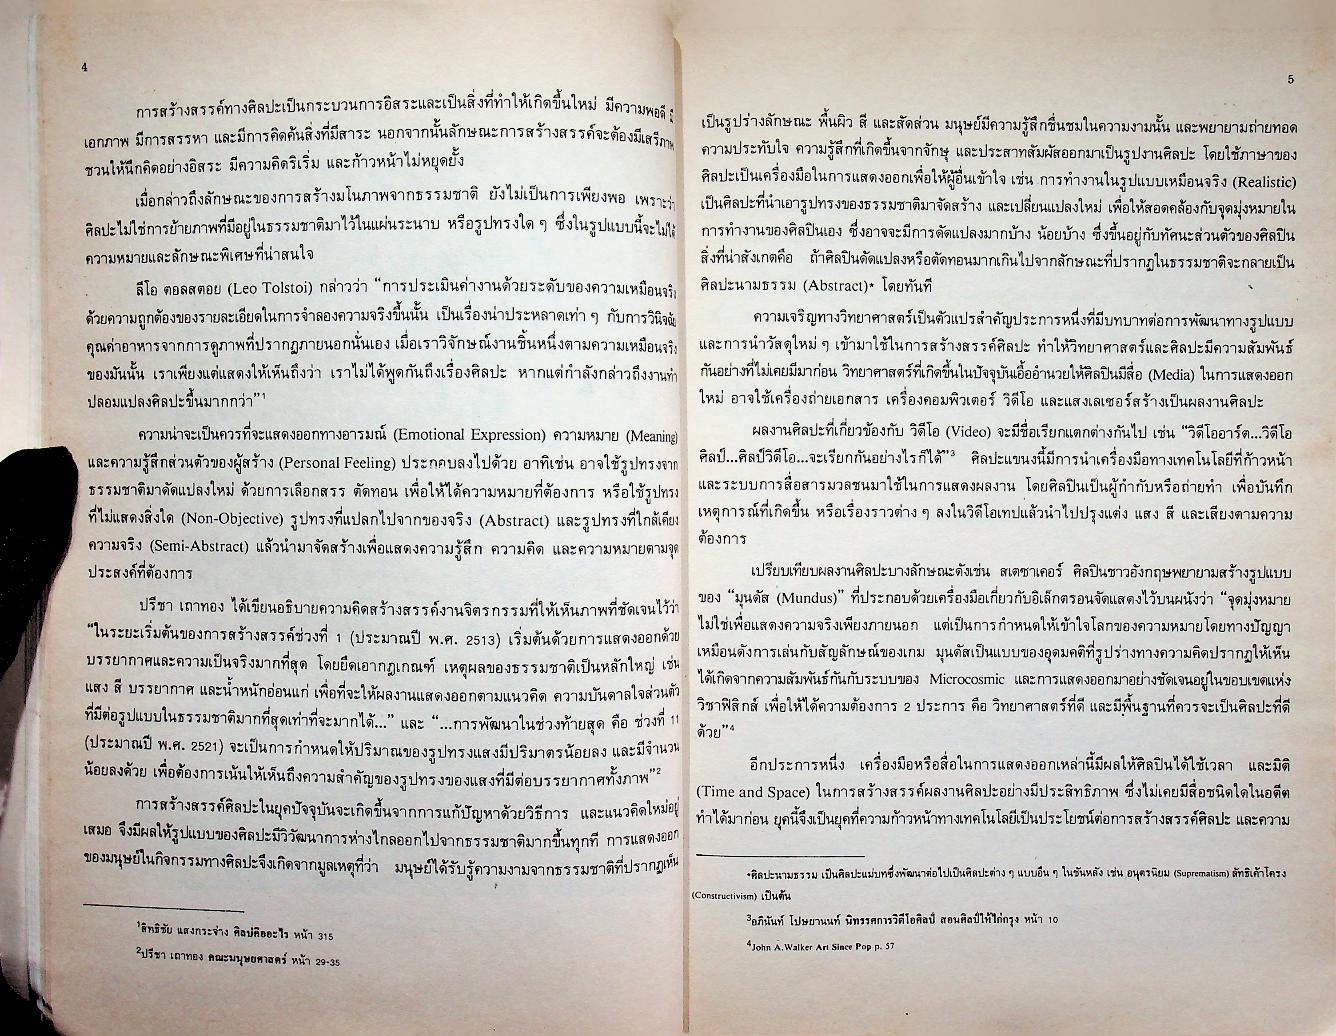 4
การสร้างสรรค์ทางศิลปะเป็นกระบวนการอิสระและเป็นสิ่งที่ทำให้เกิดขึ้นใหม่ มีความพอดี มี
เอกภาพ มีการสรรหา และมีการคิดค้นสิ่งที่มีสาระ นอกจากนั้นลักษณะการสร้างสรรค์จะต้องมีเสรีภาพ
ชวนให้นึกคิดอย่างอิสระ มีความคิดริเริ่ม และก้าวหน้าไม่หยุดยั้ง
เมื่อกล่าวถึงลักษณะของการสร้างมโนภาพจากธรรมชาติ ยังไม่เป็นการเพียงพอ เพราะว่า
ศิลปะไม่ใช่การย้ายภาพที่มีอยู่ในธรรมชาติมาไว้ในแผ่นระนาบ หรือรูปทรงใด ๆ ซึ่งในรูปแบบนี้จะไม่ได้
ความหมายและลักษณะพิเศษที่น่าสนใจ
ลีโอ ตอลสตอย (Leo Tolstoi) กล่าวว่า “การประเมินค่างานด้วยระดับของความเหมือนจริง
ด้วยความถูกต้องของรายละเอียดในการจำลองความจริงขึ้นนั้น เป็นเรื่องน่าประหลาดเท่า ๆ กับการวินิจฉัย
คุณค่าอาหารจากการดูภาพที่ปรากฏภายนอกนั่นเอง เมื่อเราวิจักษณ์งานชิ้นหนึ่งตามความเหมือนจริง
ของมันนั้น เราเพียงแต่แสดงให้เห็นถึงว่า เราไม่ได้พูดกันถึงเรื่องศิลปะ หากแต่กำลังกล่าวถึงงานทำ
ปลอมแปลงศิลปะขึ้นมากกว่า”1
ความน่าจะเป็นควรที่จะแสดงออกทางอารมณ์ (Emotional Expression) ความหมาย (Meaning)
และความรู้สึกส่วนตัวของผู้สร้าง (Personal Feeling) ประกอบลงไปด้วย อาทิเช่น อาจใช้รูปทรงจาก
ธรรมชาติมาดัดแปลงใหม่ ด้วยการเลือกสรร ตัดทอน เพื่อให้ได้ความหมายที่ต้องการ หรือใช้รูปทรง
ที่ไม่แสดงสิ่งใด (Non-Objective) รูปทรงที่แปลกไปจากของจริง (Abstract) และรูปทรงที่ใกล้เคียง
ความจริง (Semi-Abstract) แล้วนำมาจัดสร้างเพื่อแสดงความรู้สึก ความคิด และความหมายตามจุด
ประสงค์ที่ต้องการ
ปรีชา เถาทอง ได้เขียนอธิบายความคิดสร้างสรรค์งานจิตรกรรมที่ให้เห็นภาพที่ชัดเจนไว้ว่า
“ในระยะเริ่มต้นของการสร้างสรรค์ช่วงที่ 1 (ประมาณปี พ.ศ. 2513) เริ่มต้นด้วยการแสดงออกด้วย
บรรยากาศและความเป็นจริงมากที่สุด โดยยึดเอากฎเกณฑ์ เหตุผลของธรรมชาติเป็นหลักใหญ่ เช่น
แสง สี บรรยากาศ และน้ำหนักอ่อนแก่ เพื่อที่จะให้ผลงานแสดงออกตามแนวคิด ความบันดาลใจส่วนตัว
ที่มีต่อรูปแบบในธรรมชาติมากที่สุดเท่าที่จะมากได้...” และ “...การพัฒนาในช่วงท้ายสุด คือ ช่วงที่ 11
(ประมาณปี พ.ศ. 2521) จะเป็นการกำหนดให้ปริมาณของรูปทรงแสงมีปริมาตรน้อยลง และมีจำนวน
น้อยลงด้วย เพื่อต้องการเน้นให้เห็นถึงความสำคัญของรูปทรงของแสงที่มีต่อบรรยากาศทั้งภาพ”2
การสร้างสรรค์ศิลปะในยุคปัจจุบันจะเกิดขึ้นจากการแก้ปัญหาด้วยวิธีการ และแนวคิดใหม่อยู่
เสมอ จึงมีผลให้รูปแบบของศิลปะมีวิวัฒนาการห่างไกลออกไปจากธรรมชาติมากขึ้นทุกที การแสดงออก
ของมนุษย์ในกิจกรรมทางศิลปะจึงเกิดจากมูลเหตุที่ว่า มนุษย์ได้รับรู้ความงามจากธรรมชาติที่ปรากฏเห็น
1สิทธิชัย แสงกระจ่าง ศิลปคืออะไร หน้า 315
2ปรีชา เถาทอง คณะมนุษยศาสตร์ หน้า 29-35
5
เป็นรูปร่างลักษณะ พื้นผิว สี และสัดส่วน มนุษย์มีความรู้สึกชื่นชมในความงามนั้น และพยายามถ่ายทอด
ความประทับใจ ความรู้สึกที่เกิดขึ้นจากจักษุ และประสาทสัมผัสออกมาเป็นรูปงานศิลปะ โดยใช้ภาษาของ
ศิลปะเป็นเครื่องมือในการแสดงออกเพื่อให้ผู้อื่นเข้าใจ เช่น การทำงานในรูปแบบเหมือนจริง (Realistic)
เป็นศิลปะที่นำเอารูปทรงของธรรมชาติมาจัดสร้าง และเปลี่ยนแปลงใหม่ เพื่อให้สอดคล้องกับจุดมุ่งหมายใน
การทำงานของศิลปินเอง ซึ่งอาจจะมีการดัดแปลงมากบ้าง น้อยบ้าง ซึ่งขึ้นอยู่กับทัศนะส่วนตัวของศิลปิน
สิ่งที่น่าสังเกตคือ ถ้าศิลปินดัดแปลงหรือตัดทอนมากเกินไปจากลักษณะที่ปรากฏในธรรมชาติจะกลายเป็น
ศิลปะนามธรรม (Abstract)* โดยทันที
ความเจริญทางวิทยาศาสตร์เป็นตัวแปรสำคัญประการหนึ่งที่มีบทบาทต่อการพัฒนาทางรูปแบบ
และการนำวัสดุใหม่ ๆ เข้ามาใช้ในการสร้างสรรค์ศิลปะ ทำให้วิทยาศาสตร์และศิลปะมีความสัมพันธ์
กันอย่างที่ไม่เคยมีมาก่อน วิทยาศาสตร์ที่เกิดขึ้นในปัจจุบันเอื้ออำนวยให้ศิลปินมีสื่อ (Media) ในการแสดงออก
ใหม่ อาจใช้เครื่องถ่ายเอกสาร เครื่องคอมพิวเตอร์ วิดีโอ และแสงเลเซอร์สร้างเป็นผลงานศิลปะ
ผลงานศิลปะที่เกี่ยวข้องกับ วิดีโอ (Video) จะมีชื่อเรียกแตกต่างกันไป เช่น “วิดีโออาร์ต...วิดีโอ
ศิลป์...ศิลป์วิดีโอ...จะเรียกกันอย่างไรก็ได้”3 ศิลปะแขนงนี้มีการนำเครื่องมือทางเทคโนโลยีที่ก้าวหน้า
และระบบการสื่อสารมวลชนมาใช้ในการแสดงผลงาน โดยศิลปินเป็นผู้กำกับหรือถ่ายทำ เพื่อบันทึก
เหตุการณ์ที่เกิดขึ้น หรือเรื่องราวต่าง ๆ ลงในวิดีโอเทปแล้วนำไปปรุงแต่ง แสง สี และเสียงตามความ
ต้องการ
เปรียบเทียบผลงานศิลปะบางลักษณะดังเช่น สเตซาเคอร์ ศิลปินชาวอังกฤษพยายามสร้างรูปแบบ
ของ “มุนดัส (Mundus)” ที่ประกอบด้วยเครื่องมือเกี่ยวกับอิเล็กตรอนจัดแสดงไว้บนผนังว่า “จุดมุ่งหมาย
ไม่ใช่เพื่อแสดงความจริงเพียงภายนอก แต่เป็นการกำหนดให้เข้าใจโลกของความหมายโดยทางปัญญา
เหมือนดังการเล่นกับสัญลักษณ์ของเกม มุนดัสเป็นแบบของอุดมคติที่รูปร่างทางความคิดปรากฏให้เห็น
ได้เกิดจากความสัมพันธ์กันกับระบบของ Microcosmic และการแสดงออกมาอย่างชัดเจนอยู่ในขอบเขตแห่ง
วิชาฟิสิกส์ เพื่อให้ได้ความต้องการ 2 ประการ คือ วิทยาศาสตร์ที่ดี และมีพื้นฐานที่ควรจะเป็นศิลปะที่ดี
ด้วย”4
อีกประการหนึ่ง เครื่องมือหรือสื่อในการแสดงออกเหล่านี้มีผลให้ศิลปินได้ใช้เวลา และมิติ
(Time and Space) ในการสร้างสรรค์ผลงานศิลปะอย่างมีประสิทธิภาพ ซึ่งไม่เคยมีสื่อชนิดใดในอดีต
ทำได้มาก่อน ยุคนี้จึงเป็นยุคที่ความก้าวหน้าทางเทคโนโลยีเป็นประโยชน์ต่อการสร้างสรรค์ศิลปะ และความ
*ศิลปะนามธรรม เป็นศิลปะแม่บทซึ่งพัฒนาต่อไปเป็นศิลปะต่าง ๆ แบบอื่น ๆ ในชั้นหลัง เช่น อนุตรนิยม (Suprematism) ลัทธิเค้าโครง
(Constructivism) เป็นต้น
3อภินันท์ โปษยานนท์ นิทรรศการวิดีโอศิลป์ สอนศิลป์ให้ไก่กรุง หน้า 10
4John A.Walker Art Since Pop p. 57